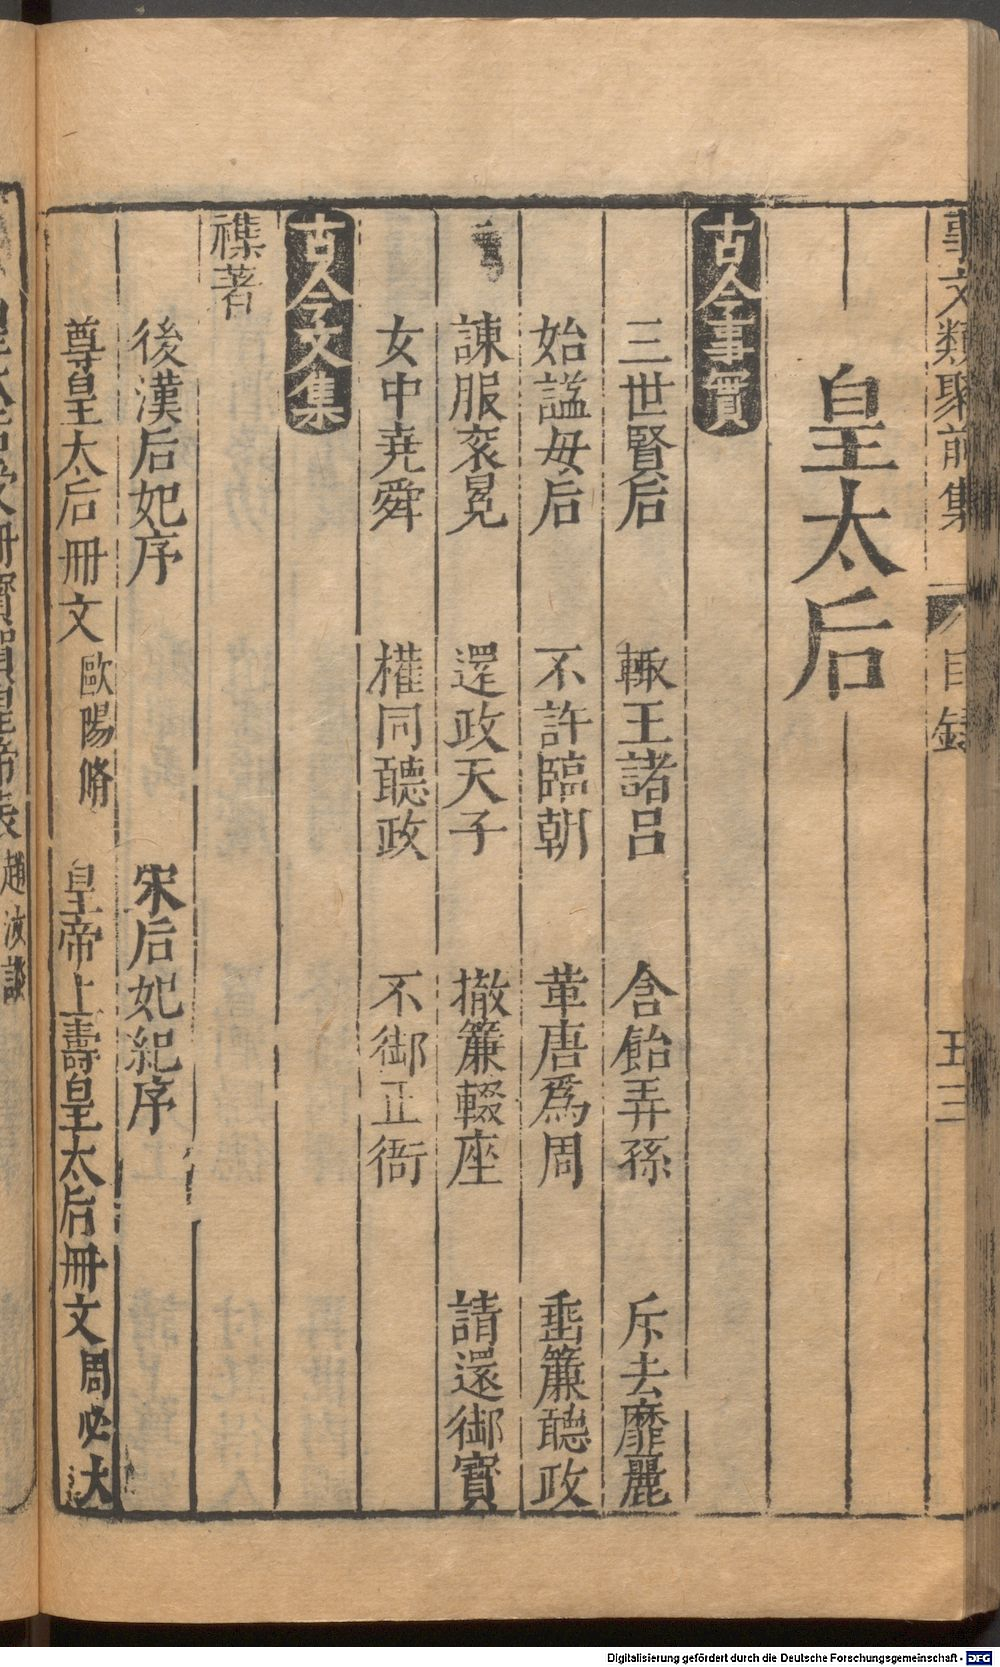 事文類聚前集 目錄 五三
皇太后
古今事實
三世賢后 輙王諸呂 含飴弄孫 斥去靡麗
始謚母后 不許臨朝 革唐爲周 垂簾聽政
諫服衮冕 還政天子 撤簾輟座 請還御寳
女中堯舜 權同聽政 不御正衙
古今文集
襍著
後漢后妃序 宋后妃紀序
尊皇太后冊文 歐陽脩 皇帝上壽皇太后冊文 周必大
冊寳賀皇帝表 趙汝談
Digitalisierung gefördert durch die Deutsche Forschungsgemeinschaft - DFG